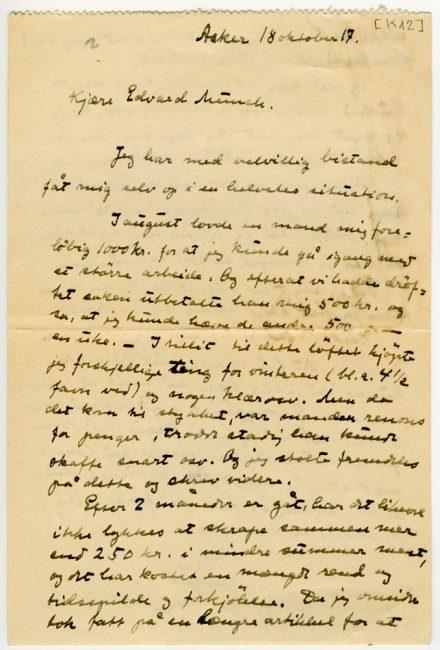 [K12]
Asker 18 oktober 17.
Kjære Edvard Munch.
Jeg har med velvillig bistand
fåt mig selv op i en helvetes situation.
I august lovde en mand mig fore=
løbig 1000 kr. for at jeg kunde gå igang med
et större arbeide. Og efterat vi hadde dröf-
tet saken utbetalte han mig 500 kr. og
sa, at jeg kunde hæve de andre 500 om
en uke. – I tillit til dette löftet kjöpte
jeg forskjellige ting for vinteren (bl.a. 4 1/2
favn ved) og nogen klær osv. Men da
det kom til stykket, var manden renons
for penger, trodde stadig han kunde
skaffe snart osv. Og jeg stolte fremdeles
på dette og skrev videre.
Efter 2 måneder er gåt, har det likevel
ikke lykkes at skrape sammen mer
end 250 kr. i mindre summer mest,
og det har kostet en mængde rend og
tidsspilde og forkjölelse. Da jeg omsider
tok fatt på en længre artikkel for at